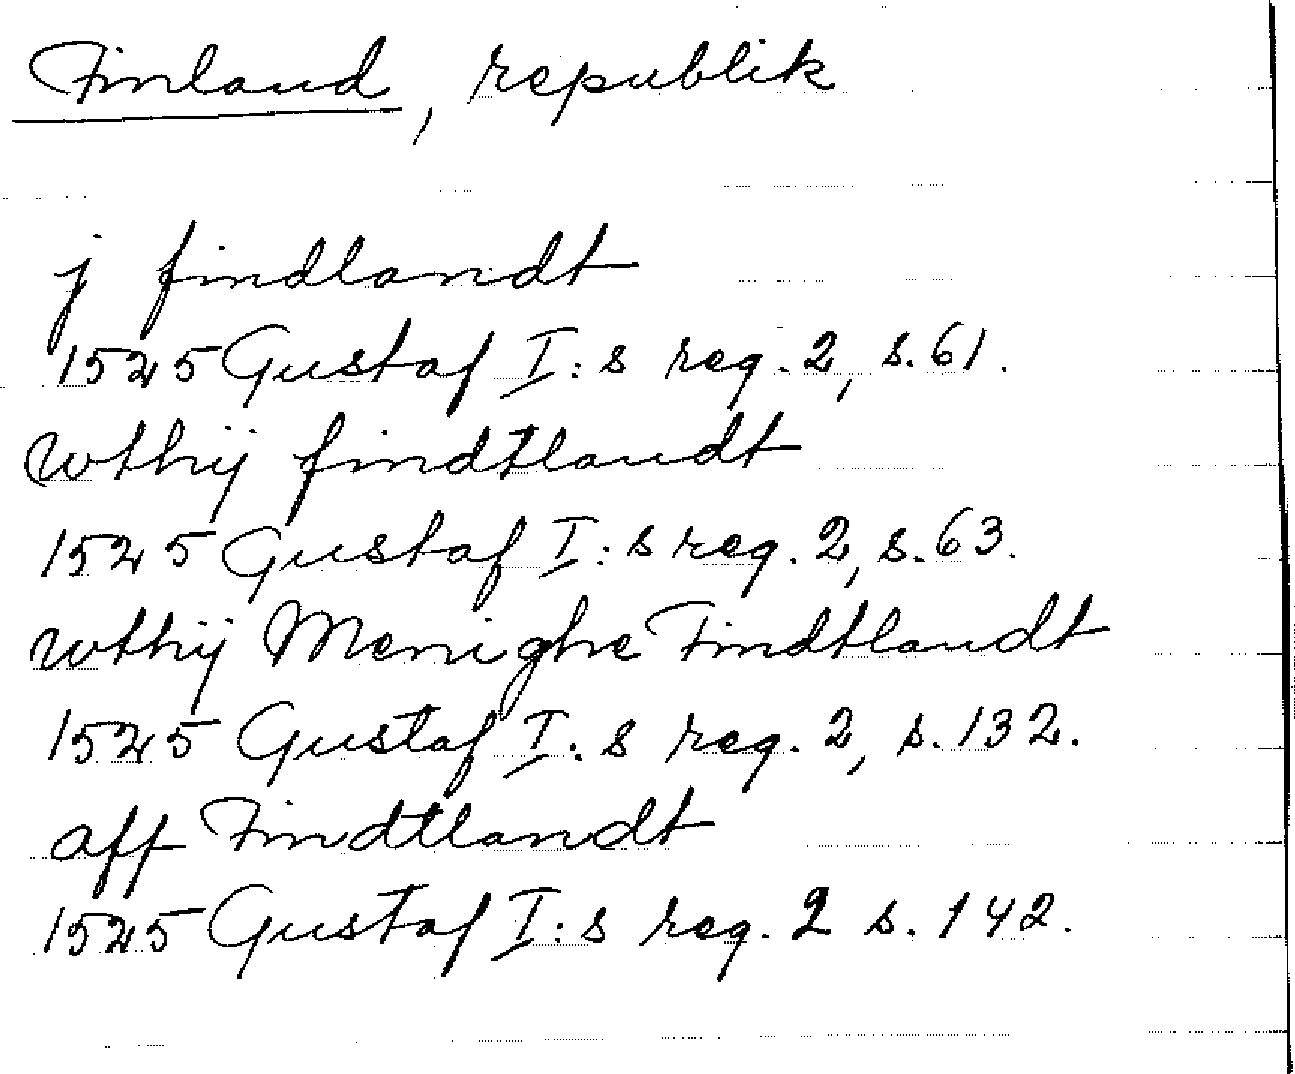 Finland, republik
j findlandt
1525 Gustaf I:s reg. 2, s. 61.
wthij findtlandt
1525 Gustaf I:s reg. 2, s. 63.
wthij Menighe Findtlandt
1525 Gustaf I:s reg. 2, s. 132.
aff Findtlandt
1525 Gustaf I:s reg. 2 s. 142.